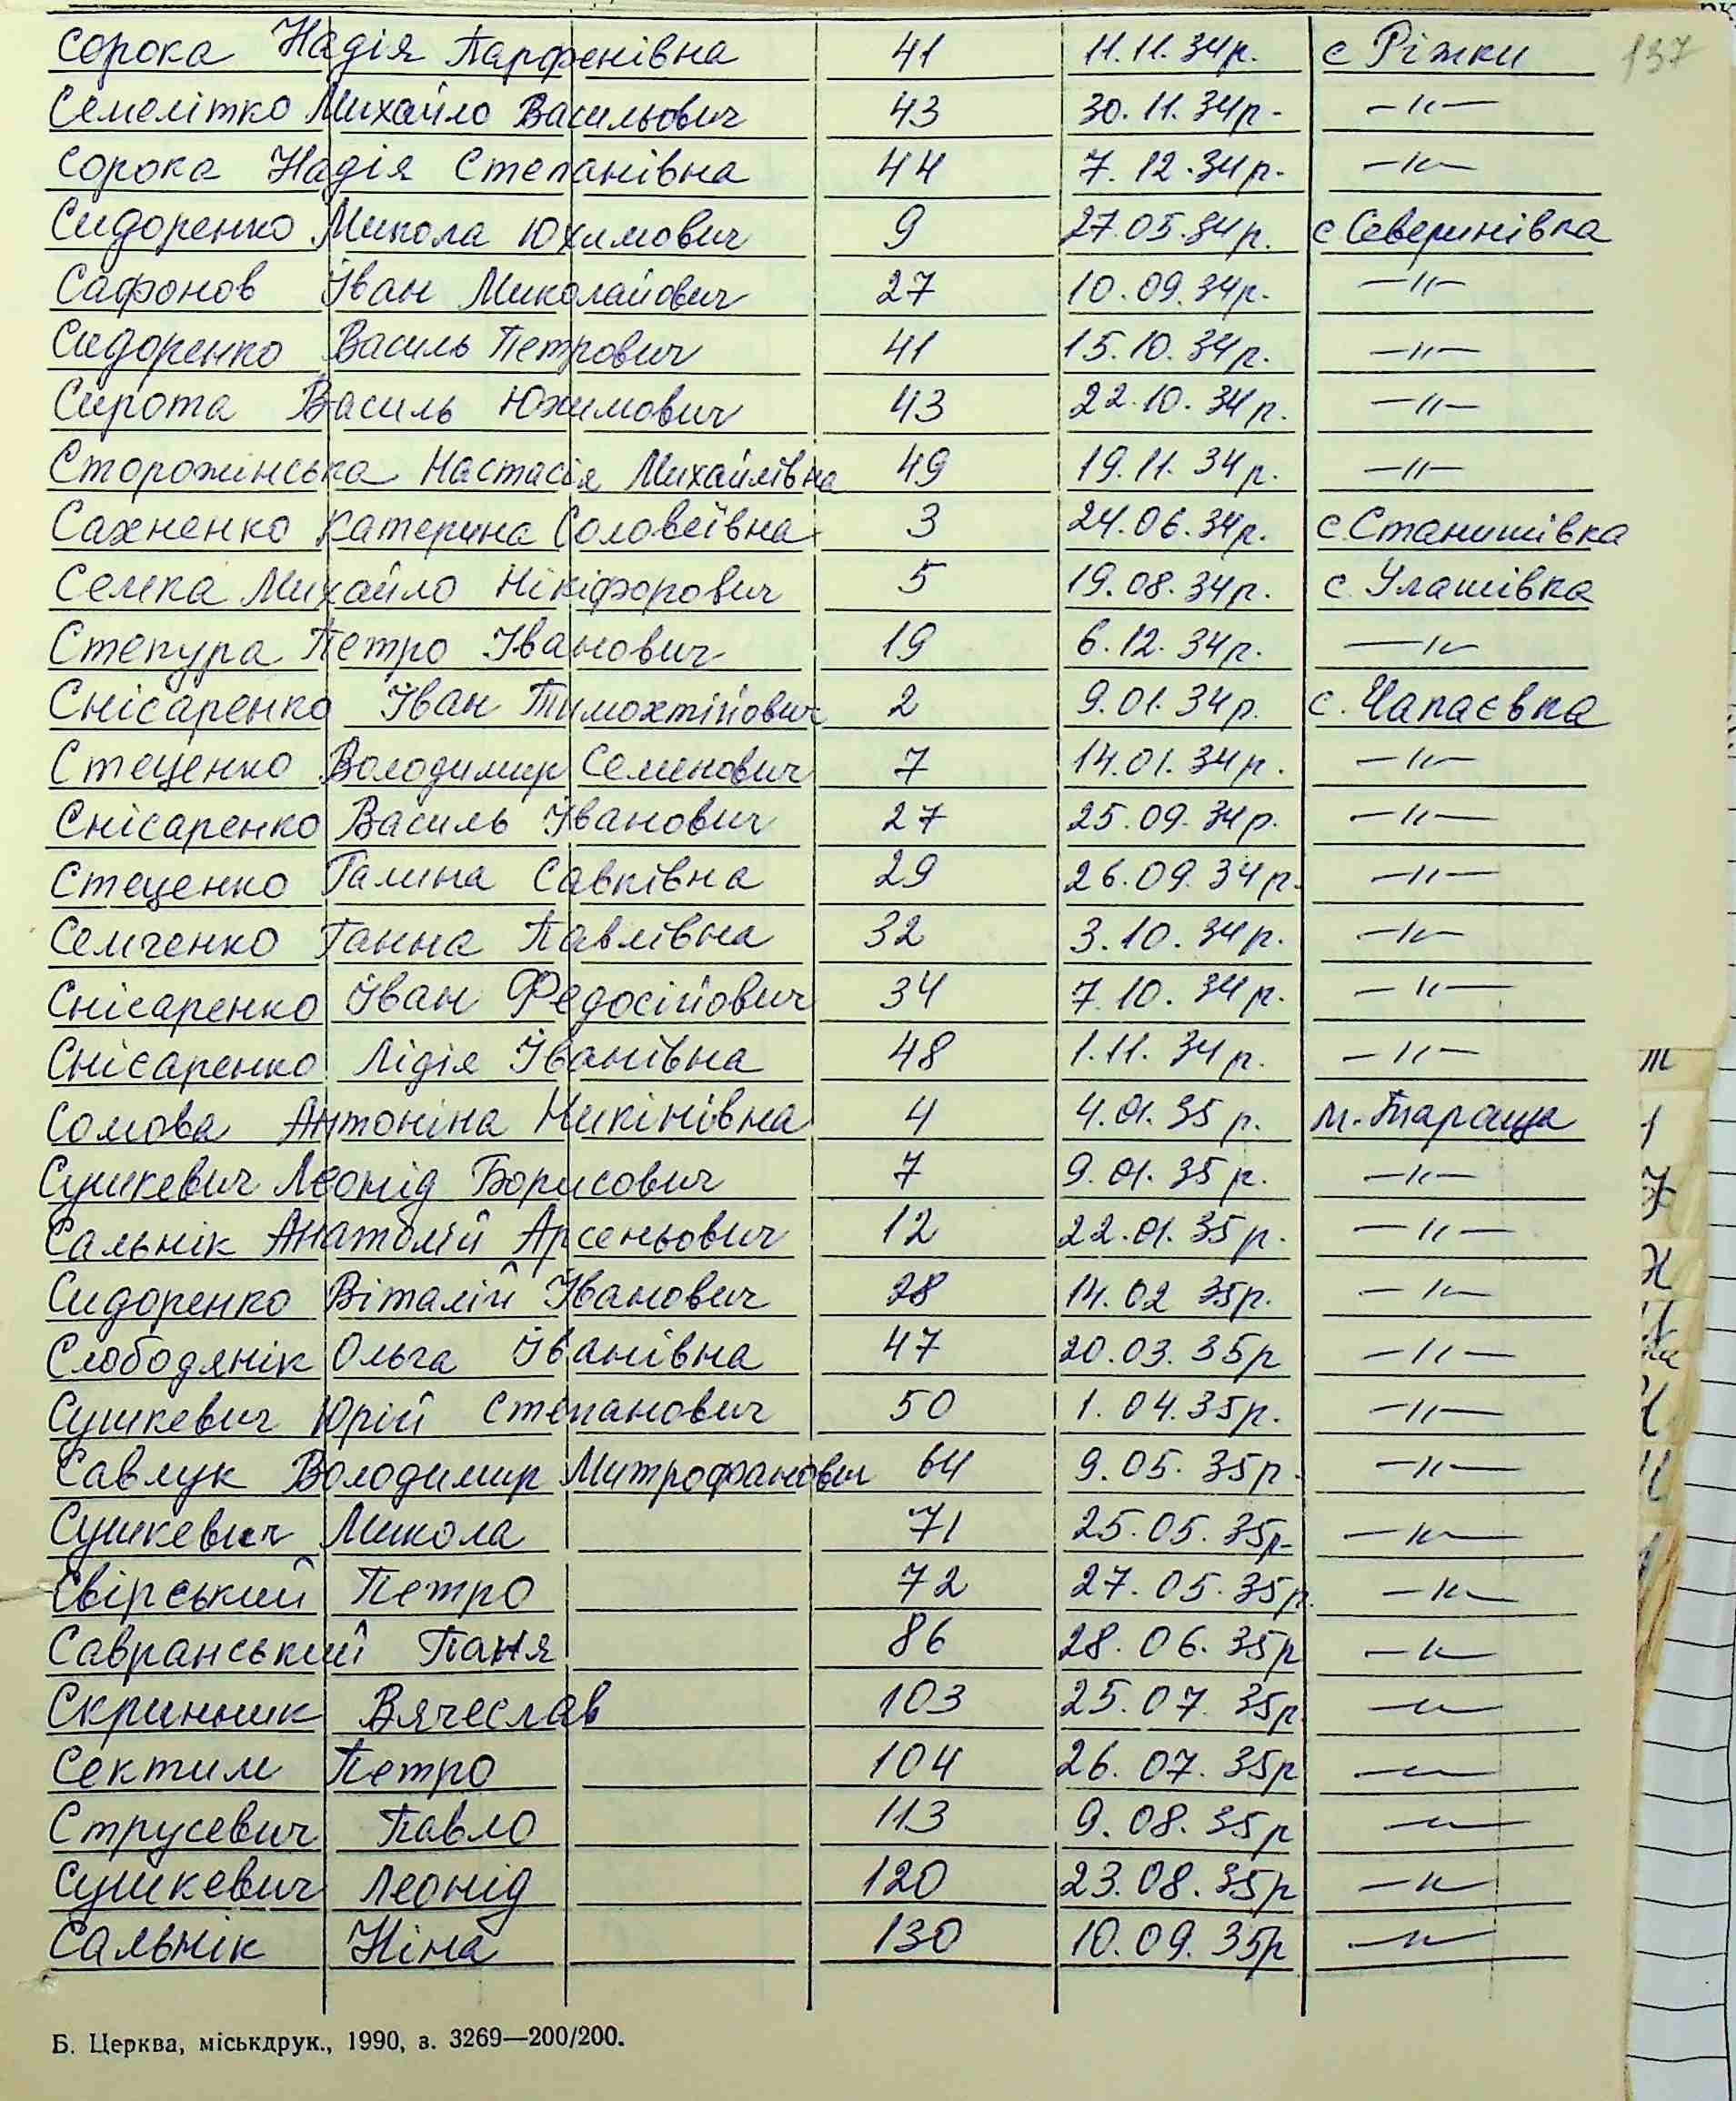 137
Сорока Надія Парфенівна 41 11.11.34р. с Ріжки
Семелітко Михайло Васильович 43 30.11.34р. —"—
Сорока Надія Степанівна 44 7.12.34р. —"—
Сидоренко Микола Юхимович 9 27.05.34р. с Северинівка
Сафонов Іван Миколайович 27 10.09.34р. —"—
Сидоренко Василь Петрович 41 15.10.34р. —"—
Сирота Василь Юхимович 43 22.10.34р. —"—
Сторожинська Настасія Михайлівна 49 19.11.34р. —"—
Сахненко Катерина Соловеївна 3 24.06.34р. с.Станишівка
Семка Михайло Нікіфорович 5 19.08.34р. с. Улашівка
Степура Петро Іванович 19 6.12.34р. —"—
Снісаренко Іван Тимохтійович 2 9.01.34р. с. Чапаєвка
Стеценко Володимир Семенович 7 14.01.34р. —"—
Снісаренко Василь Іванович 27 25.09.34р. —"—
Стеценко Галина Савківна 29 26.09.34р. —"—
Семченко Ганна Павлівна 32 3.10.34р. —"—
Снісаренко Іван Федосійович 34 7.10.34р. —"—
Снісаренко Лідія Іванівна 48 1.11.34р. —"—
Сомова Антоніна Никінівна 4 4.01.35р. м.Тараща
Сушкевич Леонід Борисович 7 9.01.35р. —"—
Сальнік Анатолій Арсеньович 12 22.01.35р. —"—
Сидоренко Віталій Іванович 28 14.02 35р. —"—
Слободянік Ольга Іванівна 47 20.03.35р —"—
Сушкевич Юрій Степанович 50 1.04.35р. —"—
Савлук Володимир Митрофанович 64 9.05.35р. —"—
Сушкевич Микола 71 25.05.35р. —"—
Свірський Петро 72 27.05.35р. —"—
Савранський Паня 86 28.06.35р —"—
Скринник Вячеслав 103 25.07.35р —"—
Сектим Петро 104 26.07.35р —"—
Струсевич Павло 113 9.08.35р —"—
Сушкевич Леонід 120 23.08.35р —"—
Сальнік Ніна 130 10.09.35р —"—
Б. Церква, міськдрук., 1990, з. 3269—200/200.